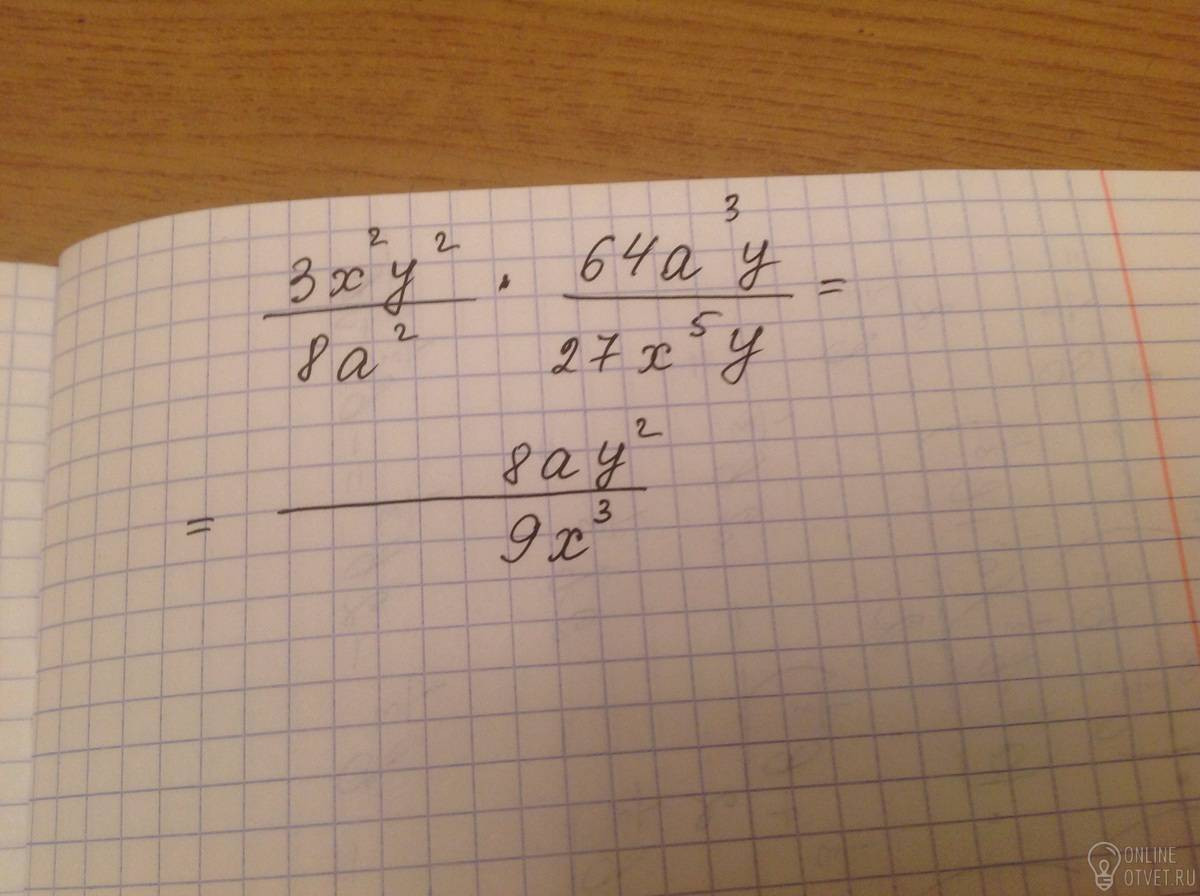 3x²y² / 8a² · 64a³y / 27x⁵y =
= 8ay² / 9x³
ONLINE
OTVET.RU